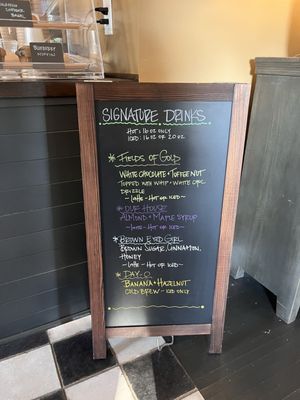 SIGNATURE DRINKS
HOT: 16 OZ ONLY
ICED: 16 OZ OR 20 OZ
* FIELDS OF GOLD
WHITE CHOCOLATE + TOFFEE NUT
TOPPED WITH WHIP + WHITE CHOC
DRIZZLE
~ LATTE - HOT OR ICED ~
* OUR HOUSE
ALMOND + MAPLE SYRUP
~ LATTE - HOT OR ICED ~
* BROWN EYED GIRL
BROWN SUGAR, CINNAMON,
HONEY
~ LATTE - HOT OR ICED ~
* DAY-O
BANANA + HAZELNUT
COLD BREW - ICED ONLY